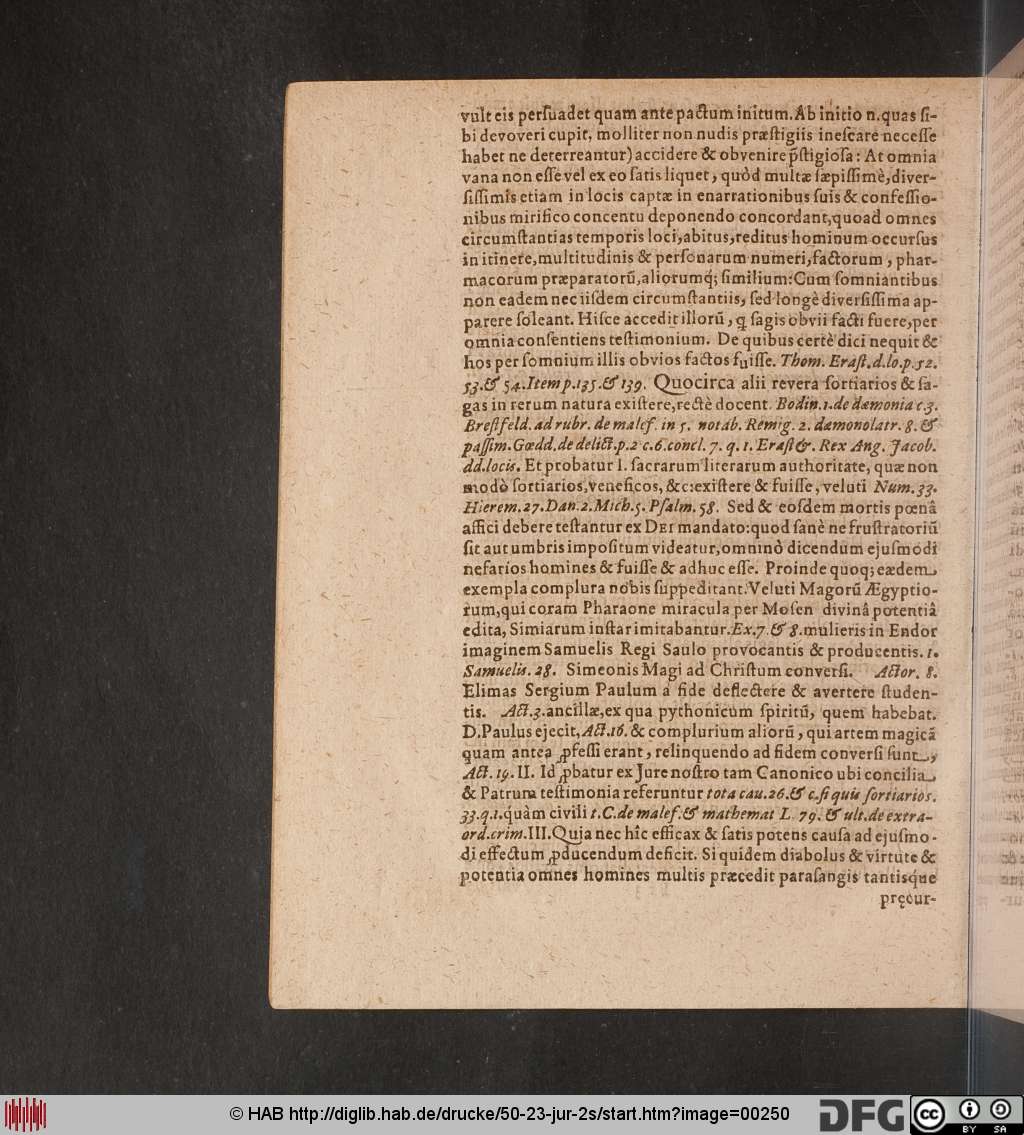 vult eis perſuadet quam ante pactum initum. Ab initio n. quas ſi-
bi devoveri cupit, molliter non nudis præſtigiis ineſcare neceſſe
habet ne deterreantur) accidere & obvenire p̃ſtigioſa: At omnia
vana non eſſe vel ex eo ſatis liquet, quòd multæ ſæpiſſimè, diver-
ſiſſimis etiam in locis captæ in enarrationibus ſuis & confeſſio-
nibus mirifico concentu deponendo concordant, quoad omnes
circumſtantias temporis loci, abitus, reditus hominum occurſus
in itinere, multitudinis & perſonarum numeri, factorum, phar-
macorum præparatorũ, aliorumq́; ſimilium: Cum ſomniantibus
non eadem nec iiſdem circumſtantiis, ſed longè diverſiſſima ap-
parere ſoleant. Hiſce accedit illorũ, ꝗ ſagis obvii facti fuere, per
omnia conſentiens teſtimonium. De quibus certè dici nequit &
hos per ſomnium illis obvios factos fuiſſe. Thom. Eraſt. d. lo. p. 52.
53. & 54. Item p. 135. & 139. Quocirca alii revera ſortiarios & ſa-
gas in rerum natura exiſtere, rectè docent. Bodin. 1. de dæmonia c. 3.
Breſtfeld. ad rubr. de malef. in 5. notab. Remig. 2. dæmonolatr. 8. &
paſſim. Gœdd. de delict. p. 2 c. 6. concl. 7. q. 1. Eraſt &. Rex Ang. Jacob.
dd. locis. Et probatur 1. ſacrarum literarum authoritate, quæ non
modò ſortiarios, veneficos, &c: exiſtere & fuiſſe, veluti Num. 33.
Hierem. 27. Dan. 2. Mich. 5. Pſalm. 58. Sed & eoſdem mortis pœnâ
affici debere teſtantur ex DEI mandato: quod ſanè ne fruſtratoriũ
ſit aut umbris impoſitum videatur, omninò dicendum ejuſmodi
nefarios homines & fuiſſe & adhuc eſſe. Proinde quoq; eædem
exempla complura nobis ſuppeditant. Veluti Magorũ Ægyptio-
rum, qui coram Pharaone miracula per Moſen divinâ potentiâ
edita, Simiarum inſtar imitabantur. Ex. 7. & 8. mulieris in Endor
imaginem Samuelis Regi Saulo provocantis & producentis. 1.
Samuelis. 28. Simeonis Magi ad Chriſtum converſi. Actor. 8.
Elimas Sergium Paulum a fide deflectere & avertere ſtuden-
tis. Act. 3. ancillæ, ex qua pythonicum ſpiritũ, quem habebat.
D. Paulus ejecit, Act. 16. & complurium aliorũ, qui artem magicã
quam antea ꝓfeſſi erant, relinquendo ad fidem converſi ſunt,
Act. 19. II. Id ꝓbatur ex Jure noſtro tam Canonico ubi concilia
& Patrum teſtimonia referuntur tota cau. 26. & c. ſi quis ſortiarios.
33. q. 1. quàm civili t. C. de malef. & mathemat L. 79. & ult. de extra-
ord. crim. III. Quia nec hîc efficax & ſatis potens cauſa ad ejuſmo-
di effectum ꝓducendum deficit. Si quidem diabolus & virtute &
potentia omnes homines multis præcedit paraſangis tantisque
pręcur-
© HAB http://diglib.hab.de/drucke/50-23-jur-2s/start.htm?image=00250
DFG
cc BY SA